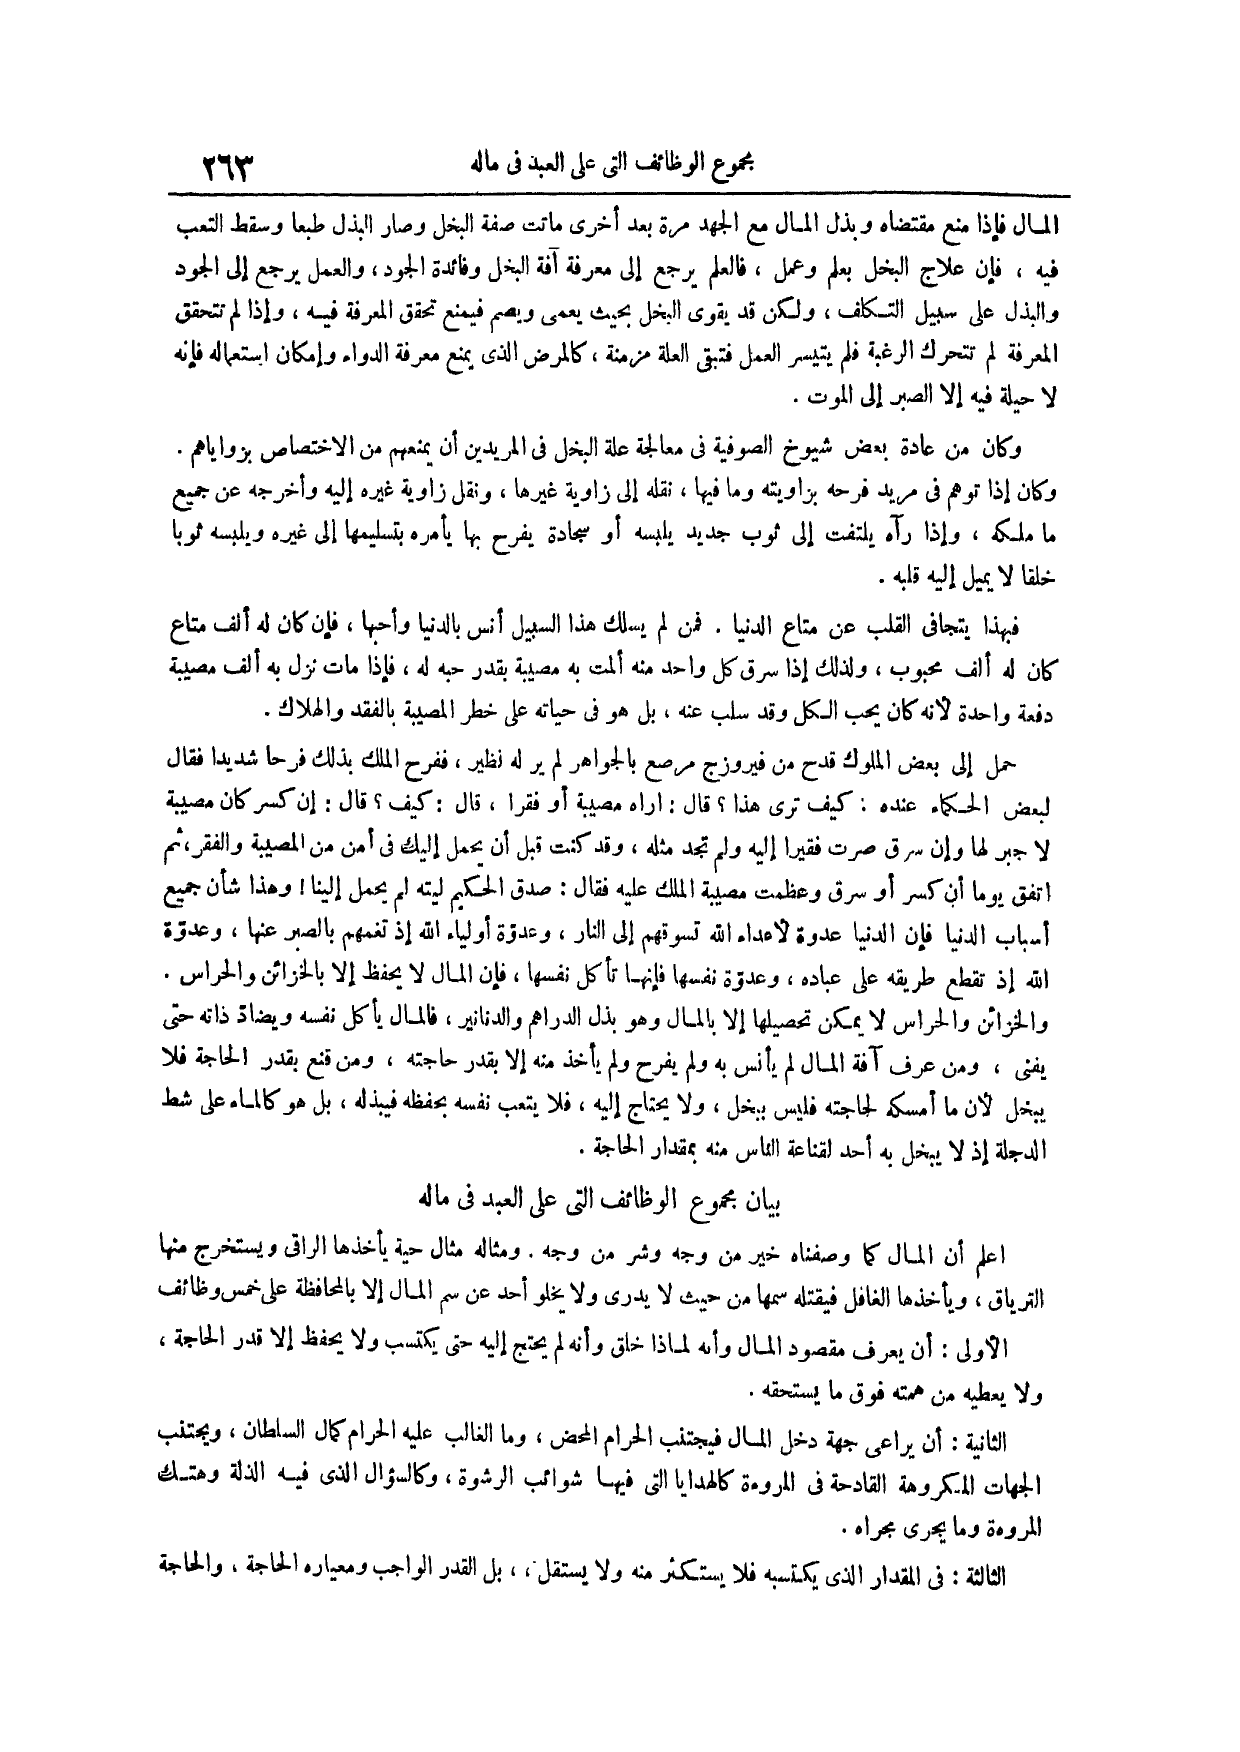 مجموع الوظائف التى على العبد فى ماله ٢٦٣
المال فإذا منع مقتضاه وبذل المال مع الجهد مرة بعد أخرى ماتت صفة البخل وصار البذل طبعا وسقط التعب
فيه ، فإن علاج البخل بعلم وعمل ، فالعلم يرجع إلى معرفة آفة البخل وفائدة الجود ، والعمل يرجع إلى الجود
والبذل على سبيل التكلف ، ولكن قد يقوى البخل بحيث يعمى ويصم فيمنع تحقق المعرفة فيه ، وإذا لم تتحقق
المعرفة لم تتحرك الرغبة فلم يتيسر العمل فتبقى العلة مزمنة ، كالمرض الذى يمنع معرفة الدواء وإمكان استعماله فإنه
لا حيلة فيه إلا الصبر إلى الموت .
وكان من عادة بعض شيوخ الصوفية فى معالجة علة البخل فى المريدين أن يمنعهم من الاختصاص بزواياهم .
وكان إذا توهم فى مريد فرحه بزاويته وما فيها ، نقله إلى زاوية غيرها ، ونقل زاوية غيره إليه وأخرجه عن جميع
ما ملكه ، وإذا رآه يلتفت إلى ثوب جديد يلبسه أو سجادة يفرح بها يأمره بتسليمها إلى غيره ويلبسه ثوبا
خلقا لا يميل إليه قلبه .
فبهذا يتجافى القلب عن متاع الدنيا . فمن لم يسلك هذا السبيل أنس بالدنيا وأحبها ، فإن كان له ألف متاع
كان له ألف محبوب ، ولذلك إذا سرق كل واحد منه ألمت به مصيبة بقدر حبه له ، فإذا مات نزل به ألف مصيبة
دفعة واحدة لأنه كان يحب الكل وقد سلب عنه ، بل هو فى حياته على خطر المصيبة بالفقد والهلاك .
حمل إلى بعض الملوك قدح من فيروزج مرصع بالجواهر لم ير له نظير ، ففرح الملك بذلك فرحا شديدا فقال
لبعض الحكماء عنده : كيف ترى هذا ؟ قال : اراه مصيبة أو فقرا ، قال : كيف ؟ قال : إن كسر كان مصيبة
لا جبر لها وإن سرق صرت فقيرا إليه ولم تجد مثله ، وقد كنت قبل أن يحمل إليك فى أمن من المصيبة والفقر ، ثم
اتفق يوما أن كسر أو سرق وعظمت مصيبة الملك عليه فقال : صدق الحكيم ليته لم يحمل إلينا ! وهذا شأن جميع
أسباب الدنيا فإن الدنيا عدوة لأعداء الله تسوقهم إلى النار ، وعدوّة أولياء الله إذ تغمهم بالصبر عنها ، وعدوّة
الله إذ تقطع طريقه على عباده ، وعدوّة نفسها فإنها تأكل نفسها ، فإن المال لا يحفظ إلا بالخزائن والحراس .
والخزائن والحراس لا يمكن تحصيلها إلا بالمال وهو بذل الدراهم والدنانير ، فالمال يأكل نفسه ويضادّ ذاته حتى
يفنى ، ومن عرف آفة المال لم يأنس به ولم يفرح ولم يأخذ منه إلا بقدر حاجته ، ومن قنع بقدر الحاجة فلا
يبخل لأن ما أمسكه لحاجته فليس ببخل ، ولا يحتاج إليه ، فلا يتعب نفسه بحفظه فيبذله ، بل هو كالماء على شط
الدجلة إذ لا يبخل به أحد لقناعة الناس منه بمقدار الحاجة .
بيان مجموع الوظائف التى على العبد فى ماله
اعلم أن المال كما وصفناه خير من وجه وشر من وجه . ومثاله مثال حية يأخذها الراقى ويستخرج منها
الترياق ، ويأخذها الغافل فيقتله سمها من حيث لا يدرى ولا يخلو أحد عن سم المال إلا بالمحافظة على خمس وظائف
الأولى : أن يعرف مقصود المال وأنه لماذا خلق وأنه لم يحتج إليه حتى يكتسب ولا يحفظ إلا قدر الحاجة ،
ولا يعطيه من همته فوق ما يستحقه .
الثانية : أن يراعى جهة دخل المال فيجتنب الحرام المحض ، وما الغالب عليه الحرام كمال السلطان ، ويجتنب
الجهات المكروهة القادحة فى المروءة كالهدايا التى فيها شوائب الرشوة ، وكالسؤال الذى فيه الذلة وهتك
المروءة وما يجرى مجراه .
الثالثة : فى المقدار الذى يكتسبه فلا يستكثر منه ولا يستقل ، بل القدر الواجب ومعياره الحاجة ، والحاجة